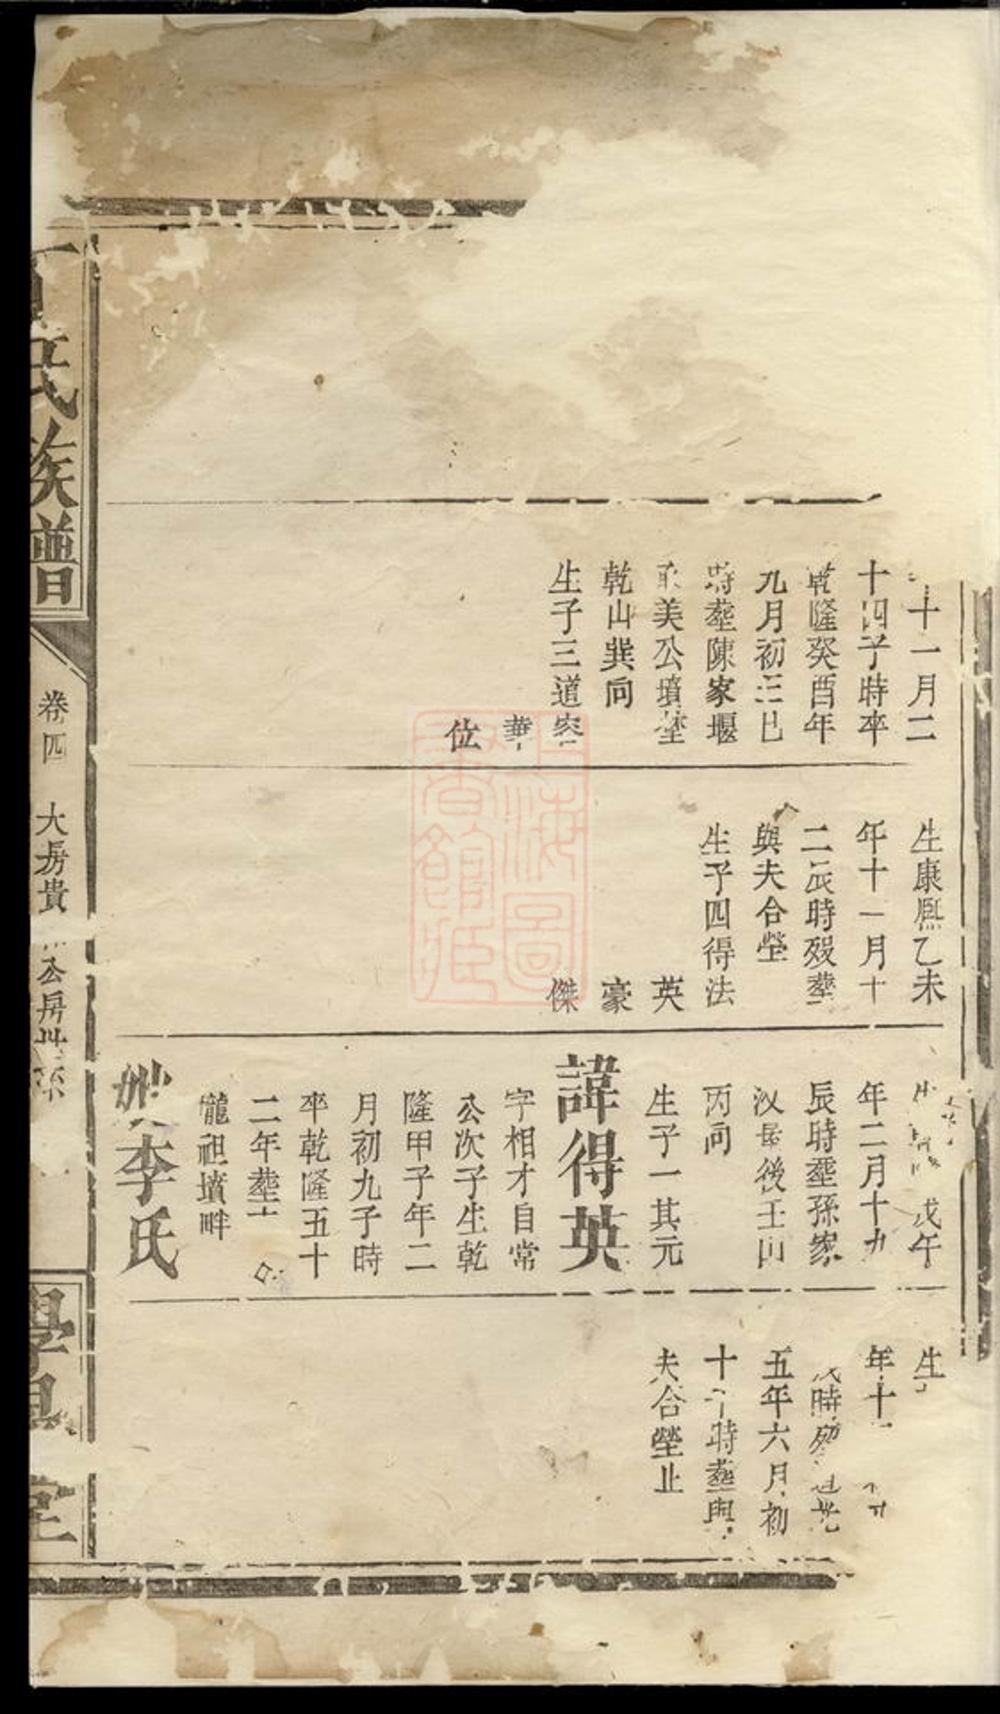 十一月二
十四子時卒
乾隆癸酉年
九月初三巳
時塟陳家堰
美公墳塋
乾山巽向
生子三道容
華
位
生康熙乙未
年十一月十
二辰時歿塟
與夫合塋
生子四得法
英
豪
傑
戊午
年二月十九
辰時塟孫家
後壬山
丙向
生子一其元
諱得英
字相才自常
公次子生乾
隆甲子年二
月初九子時
卒乾隆五十
二年塟
龍祖墳畔
李氏
生
年十
時歿
五年六月初
十 時塟與
夫合塋止
氏族譜
卷四 大房貴 公房
學 堂
上海圖
書館藏